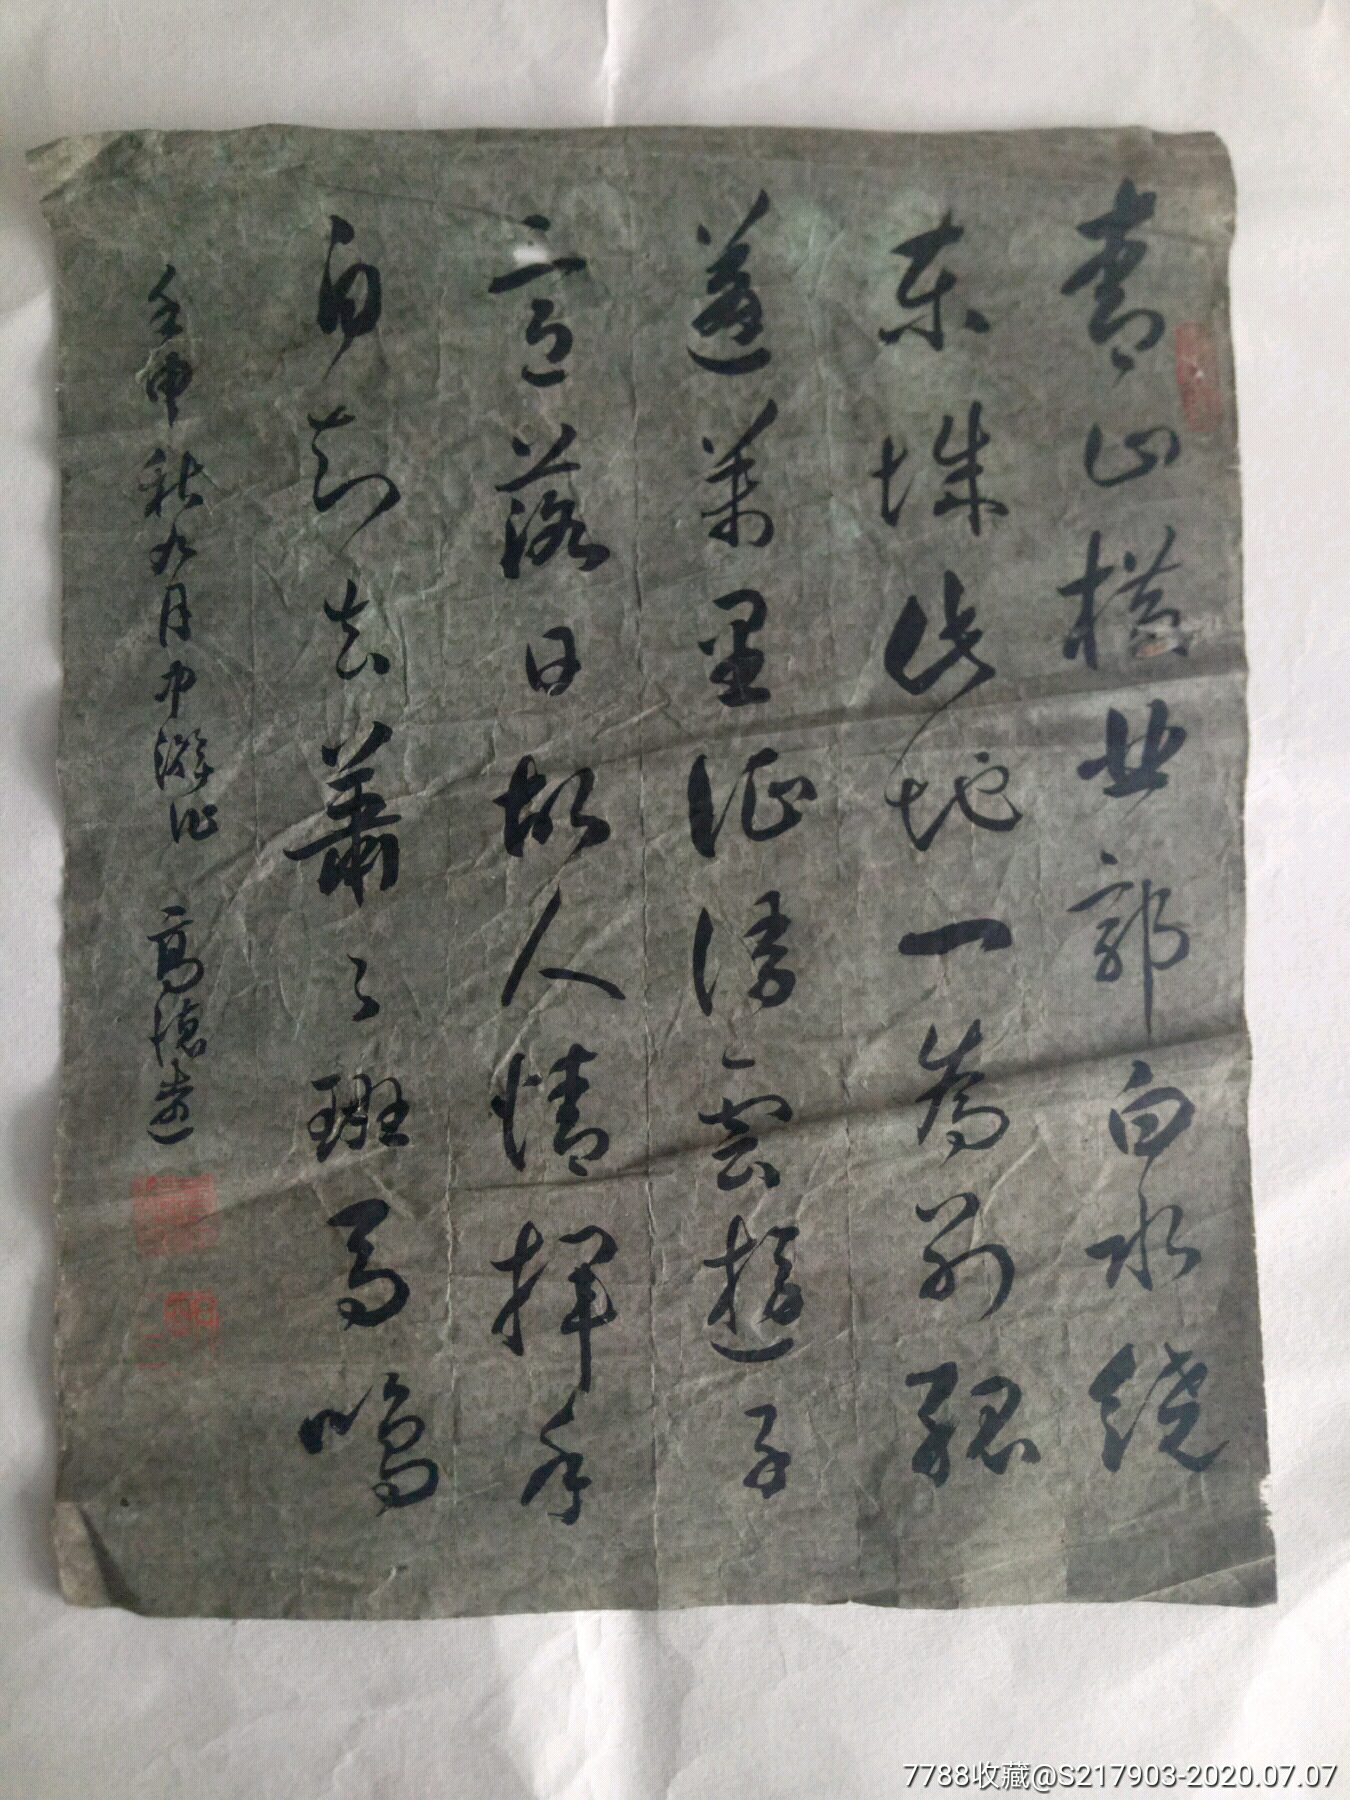 青山橫北郭白水绕
东城此地一為别孤
蓬萬里征浮雲遊子
意落日故人情揮手
自兹去蕭々班马鸣
壬申秋九月 高
7788收藏@S217903-2020.07.07